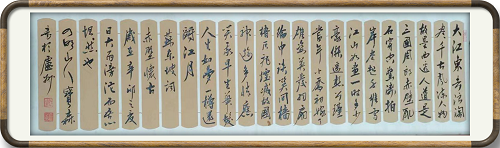 大江東去浪淘
盡千古風流人物
故壘西邊人道是
三國周郎赤壁亂
石穿空驚濤拍
岸卷起千堆雪
江山如畫一時多少
豪傑遙想公瑾
當年小喬初嫁了
雄姿英發羽扇
綸巾談笑間檣
櫓灰飛煙滅故國
神遊多情應
笑我早生華髮
人生如夢一樽還
酹江月
蘇東坡詞
赤壁懷古
歲在辛卯之夏
日大雨滂沱而心
坦然也
山人寶森
書於廬州